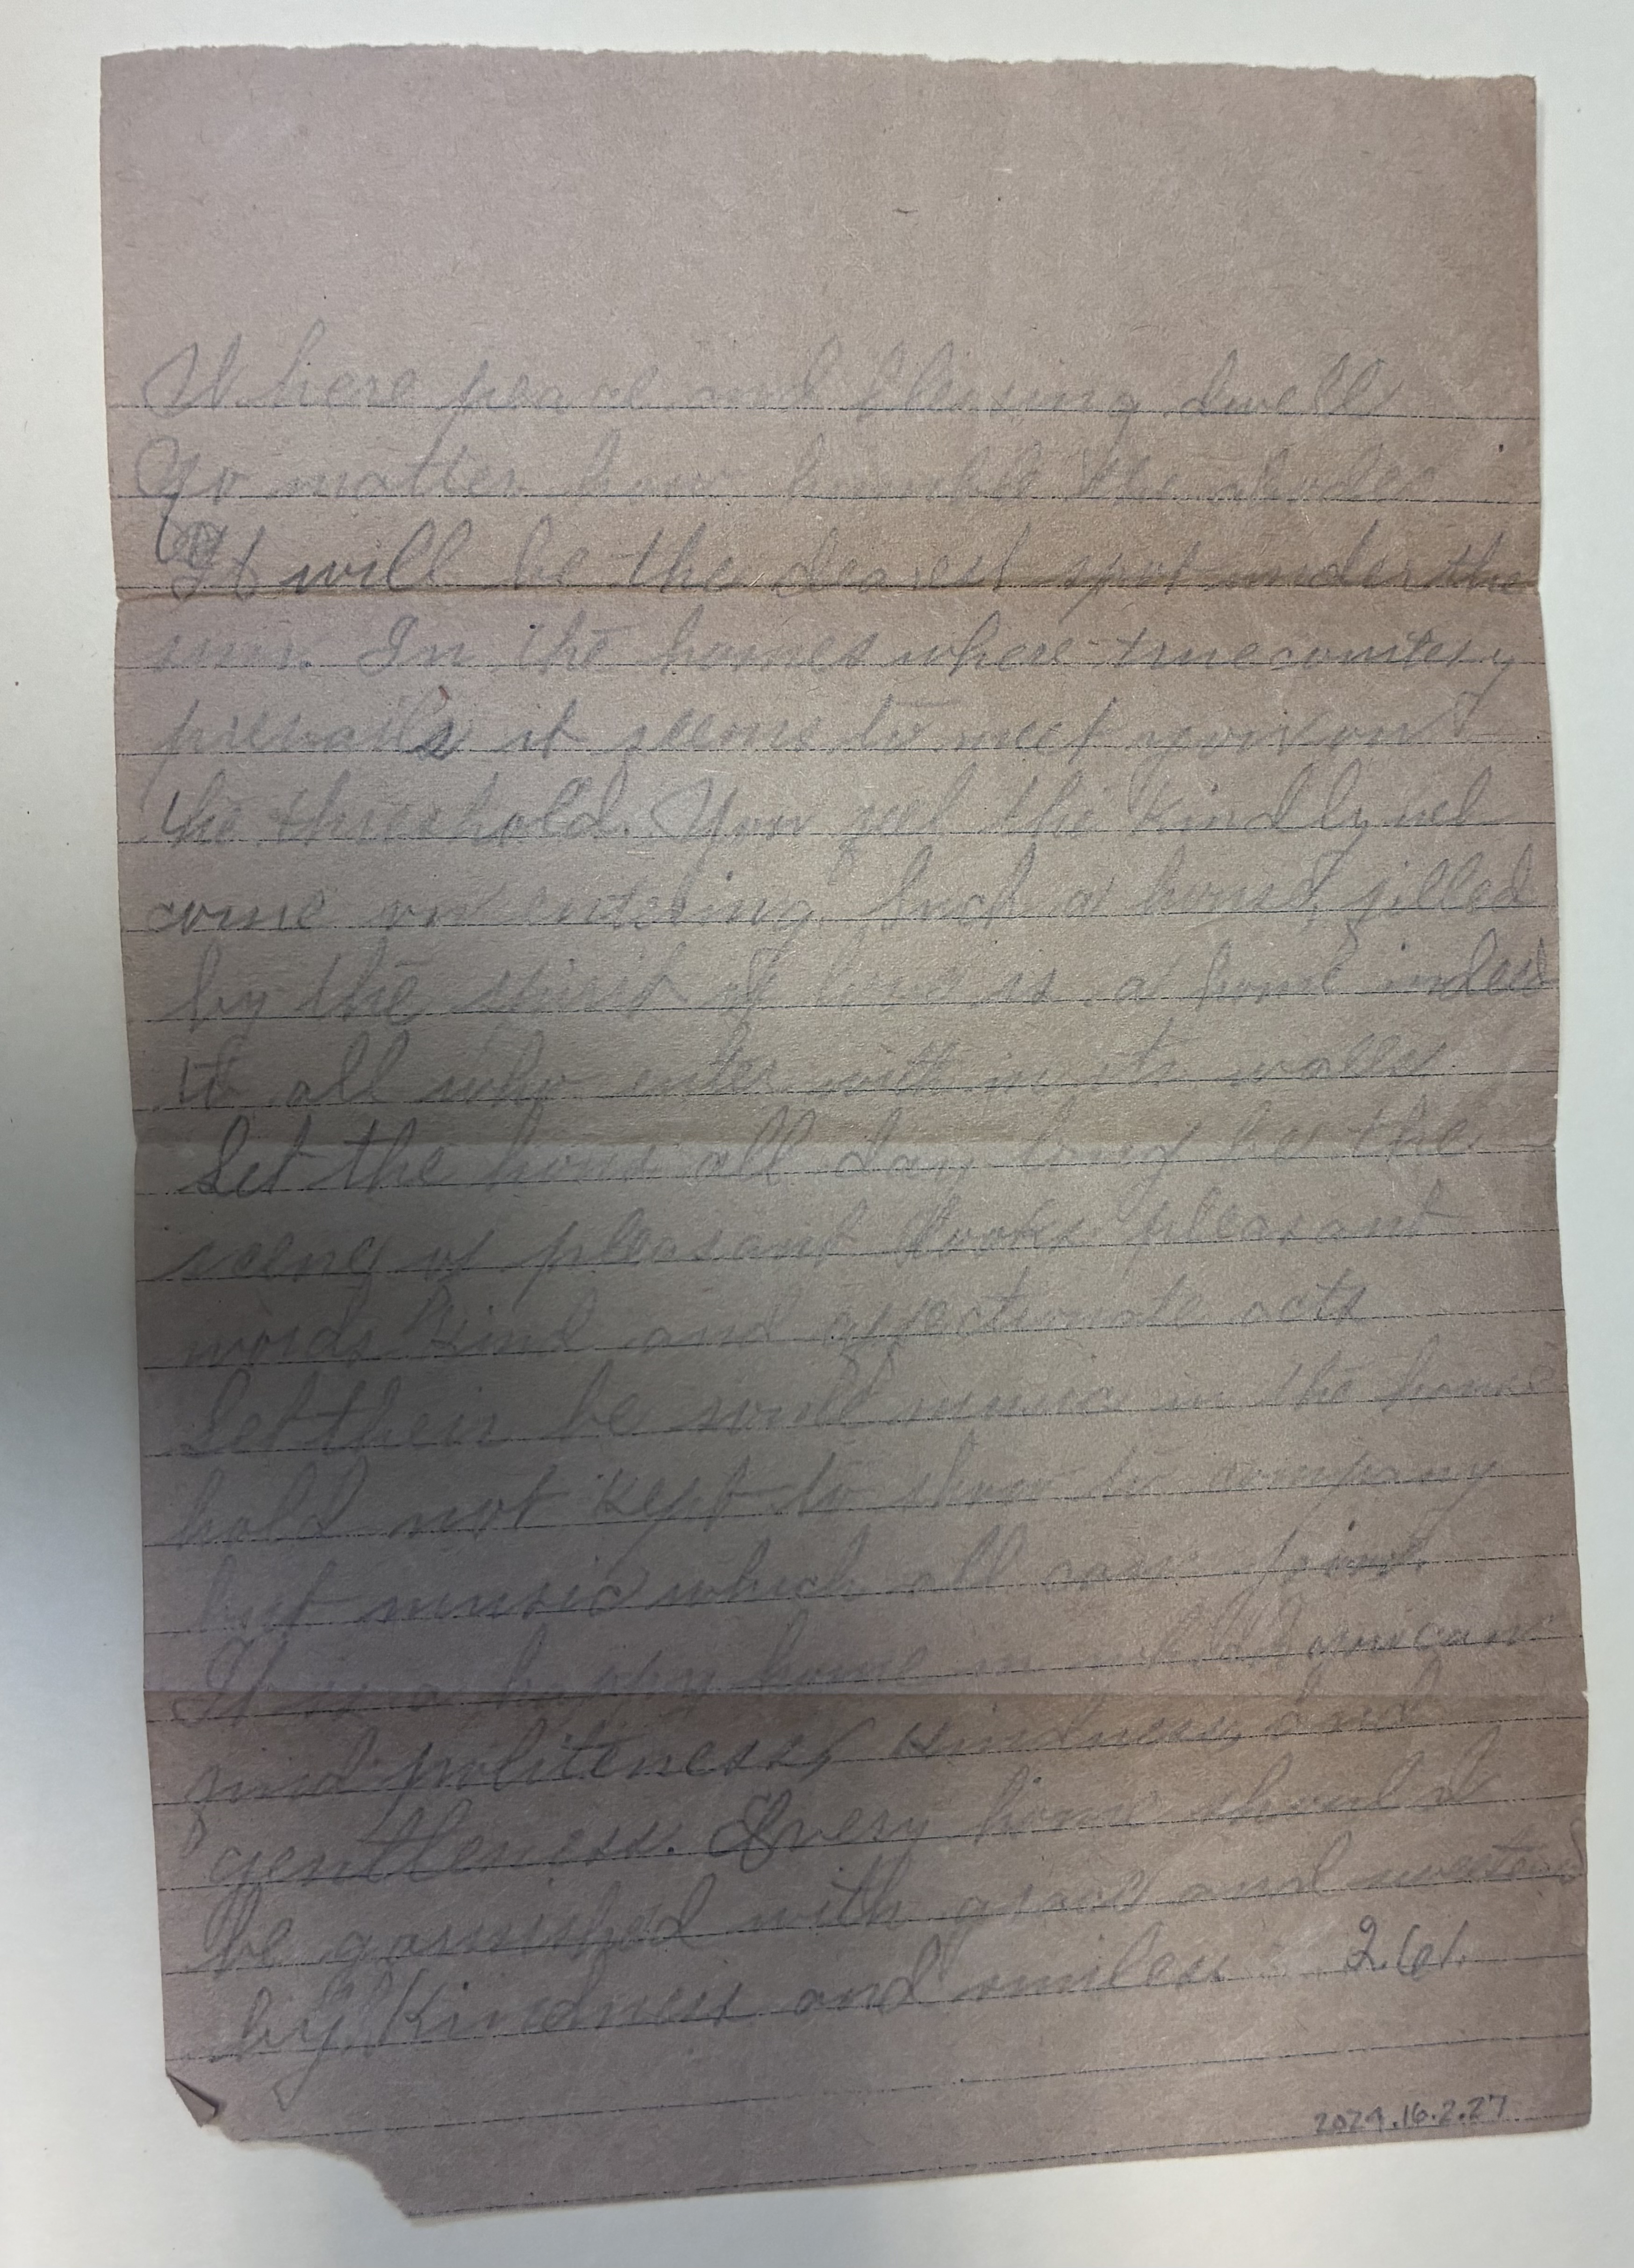 Where peace and blessing dwells
No matter how humble the abode
It will be the dearest spot under the
sun. In the homes where true courtesy
prevails it seems to meet you on
the threshold. You feel the kindly wel
come on entering. Such a house, filled
by the spirit of love is a home indeed
to all who enter with in its walls.
Let the house all day long be the
scene of pleasant looks pleasant
words kind and affectionate acts
Let their be some music in the house
hold not kept to show to company
but music which all can join.
It is a happy home in which you can
find politeness, kindness, and
gentleness. Every home should
be garnished with grace and sweetend
by kindness and smiles 2.61.
2024.16.2.27